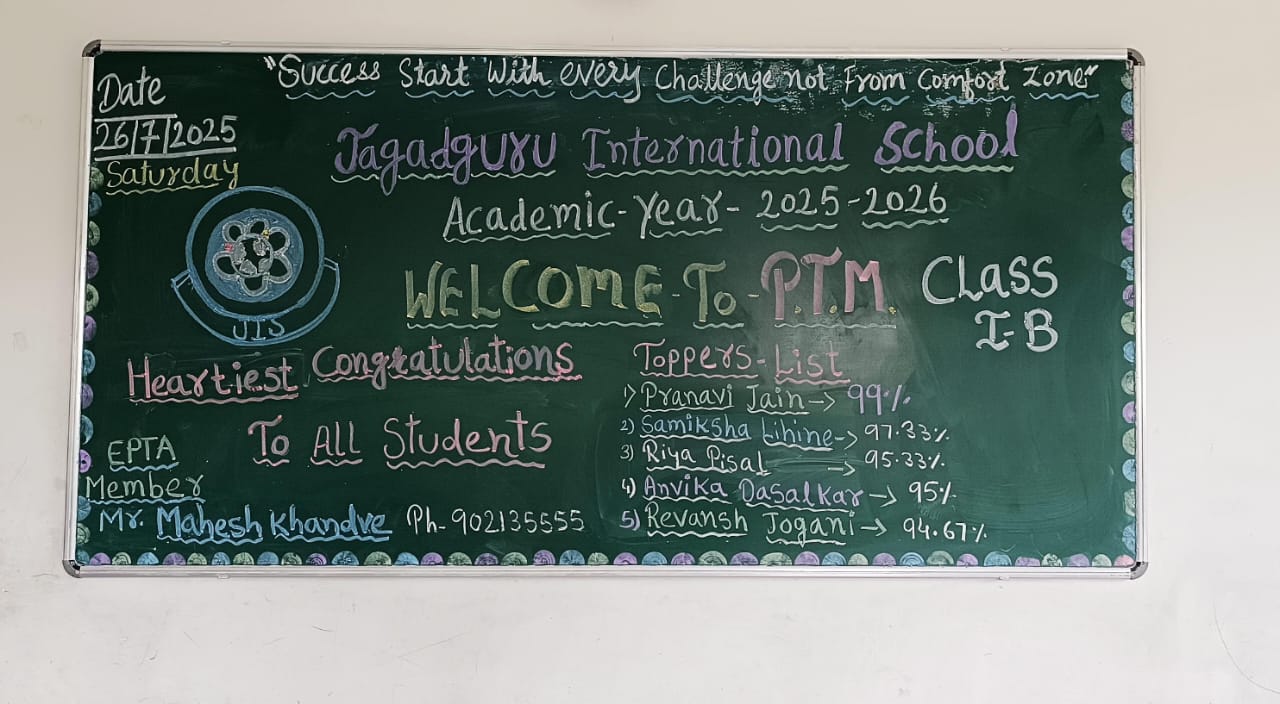 "Success Start With every Challenge not From Comfort Zone"
Date
26/7/2025
Saturday
Jagadguru International School
Academic-Year-2025-2026
WELCOME-To-P.T.M.
CLASS
I-B
JIS
Heartiest Congratulations
To All Students
EPTA
Member
Mr. Mahesh Khandve Ph-902135555
Toppers-List
1) Pranavi Jain-> 99%
2) Samiksha Lihine-> 97.33%
3) Riya Pisal -> 95.33%
4) Anvika Dasalkar-> 95%
5) Revansh Jogani-> 94.67%